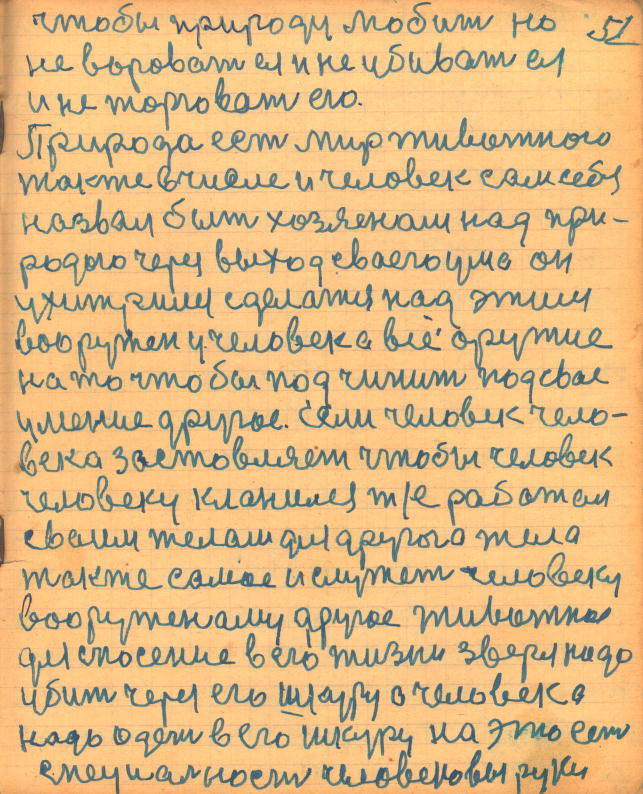 чтобы природу любит но 51
не вороват ея и не убиват ея
и не торговат его.
Природа ест мир животного
также в числе и человек сам себя
назвал быт хозяеном над при-
родою через выход сваего ума он
ухитрился сделатися над этим
вооружен у человека всё оружие
на то чтобы под чинит под свае
умение другое. если человек чело-
века заставляет чтобы человек
человеку кланился т/е работал
сваим телам для другого тела
также самае и служет человеку
вооруженаму другое животное
для спосение в его жизни зверя надо
убит через его шкуру а человека
надо одет в его шкуру на это ест
специальност человековы руки